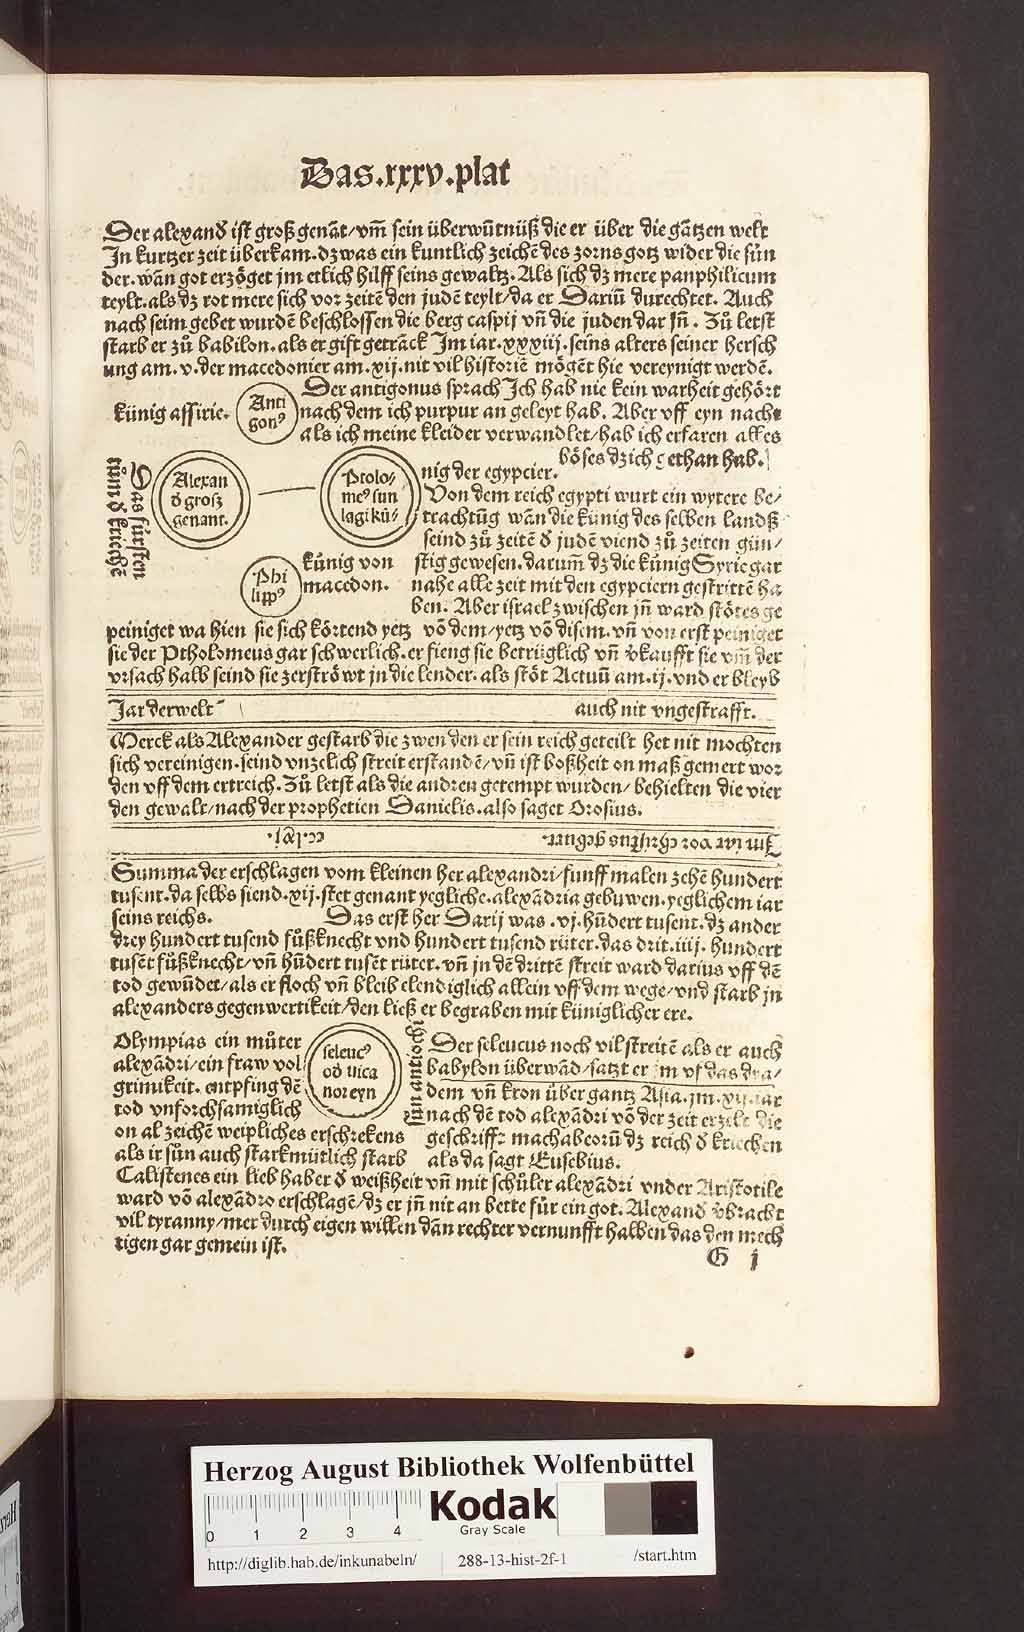 Das.xxxv.plat
Der alexand̄ ist groß genāt/vm̄ sein überwūtnüß die er über die gātzen welt
In kurtzer zeit überkam.dz was ein kuntlich zeichē des zorns gotz wider die sün
der.wān got erzöget jm etlich hilff seins gewaltz.Als sich dz mere panphilicum
teylt.als dz rot mere sich vor zeitē den judē teylt/da er Dariū durechtet. Auch
nach seim gebet wurdē beschlossen die berg caspij vn̄ die juden dar jn̄. Zů letst
starb er zů babilon.als er gift getrāck Im iar.xxxiij.seins alters seiner hersch
ung am.v.der macedonier am.xij.nit vil historiē mögēt hie vereynigt werdē.
künig assirie.
Anti
gonꝰ
Der antigonus sprach Ich hab nie kein warheit gehört
nach dem ich purpur an geleyt hab. Aber vff eyn nacht
als ich meine kleider verwandlet/hab ich erfaren alles
böses dz ich gethan hab.
Das fürsten
tům d̄ kriechē
Alexan
d̄ groß
genant.
Ptolo/
meꝰ sun
lagi kü/
nig der egypcier.
Von dem reich egypti wurt ein wytere be/
trachtūg wān die künig des selben landß
seind zů zeitē d̄ judē viend zů zeiten gün/
stig gewesen.darum̄ dz die künig Syrie gar
nahe alle zeit mit den egypciern gestrittē ha
ben. Aber israel zwischen jn̄ ward stötes ge
Phi
lippꝰ
künig von
macedon.
peiniget wa hien sie sich körtend yetz vō dem/yetz vō disem.vn̄ von erst peiniget
sie der Ptholomeus gar schwerlich.er fieng sie betrüglich vn̄ v̄kaufft sie vm̄ der
vrsach halb seind sie zerströwt jn die lender.als stöt Actuū am.ij.vnd er bleyb
Jar der welt
auch nit vngestrafft.
Merck als Alexander gestarb die zwen den er sein reich geteilt het nit mochten
sich vereinigen.seind vnzelich streit erstandē/vn̄ ist boßheit on maß gemert wor
den vff dem ertreich.Zů letst als die andren getempt wurden/behielten die vier
den gewalt/nach der prophetien Danielis.also saget Orosius.
Jm iar vor christus geburt.
Summa der erschlagen vom kleinen her alexandri/funff malen zehē hundert
tusent.da selbs siend.xij.stet genant yegliche.alexādria gebuwen.yeglichem iar
seins reichs. Das erst her Darij was.vj.hūdert tusent.dz ander
drey hundert tusend fůßknecht vnd hundert tusend rüter.das drit.iiij.hundert
tusēt fůßknecht/vn̄ hūdert tusēt rüter.vn̄ jn dē drittē streit ward darius vff dē
tod gewūdet/als er floch vn̄ bleib elendiglich allein vff dem wege/vnd starb jn
alexanders gegenwertikeit/den ließ er begraben mit küniglicher ere.
Olympias ein můter
alexādri/ein fraw vol
grimikeit.entpfing dē
tod vnforchsamiglich
on al zeichē weipliches erschrekens
als ir sün auch starkmütlich starb
seleucꝰ
od̄ nica
nor eyn
Der seleucus noch vil streitē als er auch
babylon überwād/satzt er jm vf das dya/
dem vn̄ kron über gantz Asia.jm.xij.iar
nach dē tod alexādri vō der zeit erzelt die
geschrifft machabeorū dz reich d̄ kriechen
als da sagt Eusebius.
Calistenes ein lieb haber d̄ weißheit vn̄ mit schůler alexādri vnder Aristotile
ward vō alexādro erschlagē/dz er jn̄ nit an bette für ein got. Alexand̄ v̄bracht
vil tyranny/mer durch eigen willen dān rechter vernunfft halben das den mech
tigen gar gemein ist.
G j
Herzog August Bibliothek Wolfenbüttel
0 1 2 3 4
Kodak
Gray Scale
http://diglib.hab.de/inkunabeln/
288-13-hist-2f-1
/start.htm